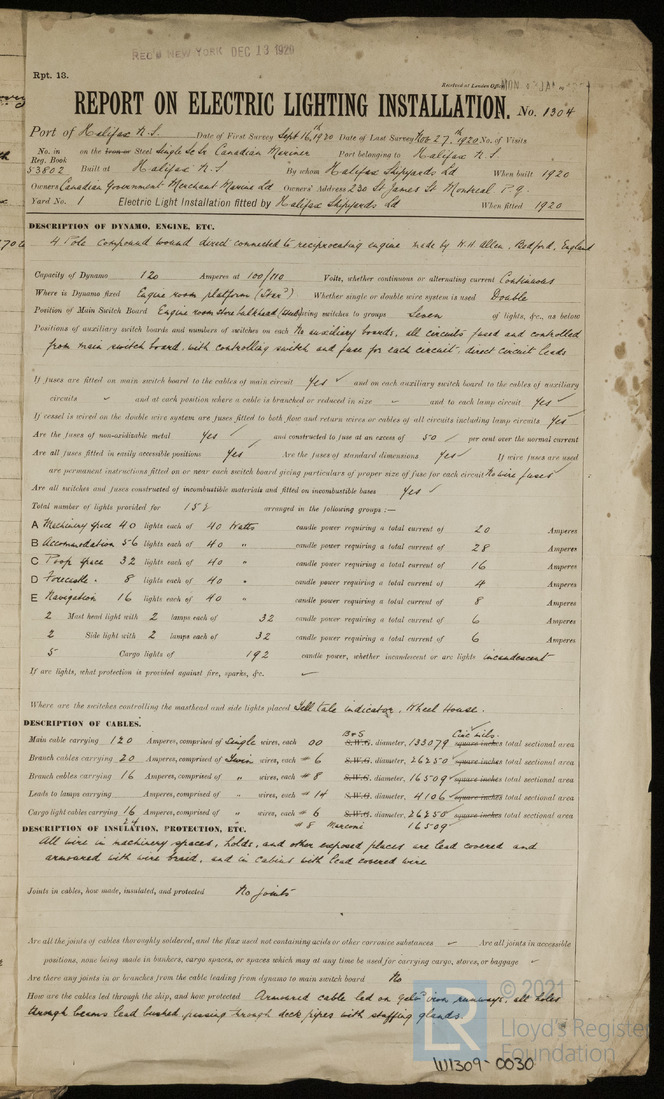 REC'D NEW YORK DEC 13 1920
Rpt. 13.
Received at London Office MON.
REPORT ON ELECTRIC LIGHTING INSTALLATION. No. 1304
Port of Halifax N.S. Date of First Survey Sept 16th 1920 Date of Last Survey Nov 27th 1920 No. of Visits
No. in Reg. Book 53802 on the Iron or Steel Single Sc Sr Canadian Mariner Port belonging to Halifax N.S.
Built at Halifax N.S. By whom Halifax Shipyards Ld When built 1920
Owners Canadian Government Merchant Marine Ld Owners' Address 230 St James St Montreal P.Q.
Yard No. 1 Electric Light Installation fitted by Halifax Shipyards Ld When fitted 1920
DESCRIPTION OF DYNAMO, ENGINE, ETC.
4 Pole compound wound direct connected to reciprocating engine made by W.H. Allen, Bedford, England
Capacity of Dynamo 120 Amperes at 100/110 Volts, whether continuous or alternating current Continuous
Where is Dynamo fixed Engine room platform Whether single or double wire system is used Double
Position of Main Switch Board Engine room store bulkhead having switches to groups Seven of lights, &c., as below
Positions of auxiliary switch boards and numbers of switches on each No auxiliary boards, all circuits fused and controlled
from main switch board, with controlling switch and fuse for each circuit - direct circuit leads
If fuses are fitted on main switch board to the cables of main circuit Yes ✓ and on each auxiliary switch board to the cables of auxiliary
circuits " and at each position where a cable is branched or reduced in size " and to each lamp circuit Yes ✓
If vessel is wired on the double wire system are fuses fitted to both flow and return wires or cables of all circuits including lamp circuits Yes ✓
Are the fuses of non-oxidizable metal Yes ✓ and constructed to fuse at an excess of 50 ✓ per cent over the normal current
Are all fuses fitted in easily accessible positions Yes ✓ Are the fuses of standard dimensions Yes ✓ If wire fuses are used
are permanent instructions fitted on or near each switch board giving particulars of proper size of fuse for each circuit No wire fuses ✓
Are all switches and fuses constructed of incombustible materials and fitted on incombustible bases Yes ✓
Total number of lights provided for 152 arranged in the following groups :—
A Machinery space 40 lights each of 40 Watts candle power requiring a total current of 20 Amperes
B Accommodation 56 lights each of 40 " candle power requiring a total current of 28 Amperes
C Poop space 32 lights each of 40 " candle power requiring a total current of 16 Amperes
D Forecastle . 8 lights each of 40 " candle power requiring a total current of 4 Amperes
E Navigation 16 lights each of 40 " candle power requiring a total current of 8 Amperes
2 Mast head light with 2 lamps each of 32 candle power requiring a total current of 6 Amperes
2 Side light with 2 lamps each of 32 candle power requiring a total current of 6 Amperes
5 Cargo lights of 192 candle power, whether incandescent or arc lights incandescent
If arc lights, what protection is provided against fire, sparks, &c. ✓
Where are the switches controlling the masthead and side lights placed Tell tale indicator, Wheel House.
DESCRIPTION OF CABLES.
Main cable carrying 120 Amperes, comprised of Single wires, each 00 B & S S.W.G. diameter, 133079 Circ mils. square inches total sectional area
Branch cables carrying 20 Amperes, comprised of Twin wires, each # 6 S.W.G. diameter, 26250 square inches total sectional area
Branch cables carrying 16 Amperes, comprised of " wires, each # 8 S.W.G. diameter, 16509 square inches total sectional area
Leads to lamps carrying Amperes, comprised of " wires, each # 14 S.W.G. diameter, 4106 square inches total sectional area
Cargo light cables carrying 16 Amperes, comprised of " wires, each # 6 S.W.G. diameter, 26250 square inches total sectional area
24 " # 8 Marconi 16509
DESCRIPTION OF INSULATION, PROTECTION, ETC.
All wire in machinery spaces, holds, and other exposed places are lead covered and
armoured with wire braid, and in cabins with lead covered wire
Joints in cables, how made, insulated, and protected No joints
Are all the joints of cables thoroughly soldered, and the flux used not containing acids or other corrosive substances ✓ Are all joints in accessible
positions, none being made in bunkers, cargo spaces, or spaces which may at any time be used for carrying cargo, stores, or baggage ✓
Are there any joints in or branches from the cable leading from dynamo to main switch board No
How are the cables led through the ship, and how protected Armoured cable led on galvd iron runways, all holes
through beams lead bushed, passing through deck pipes with stuffing glands.
© 2021
LR Lloyd's Register
Foundation
W1309-0030